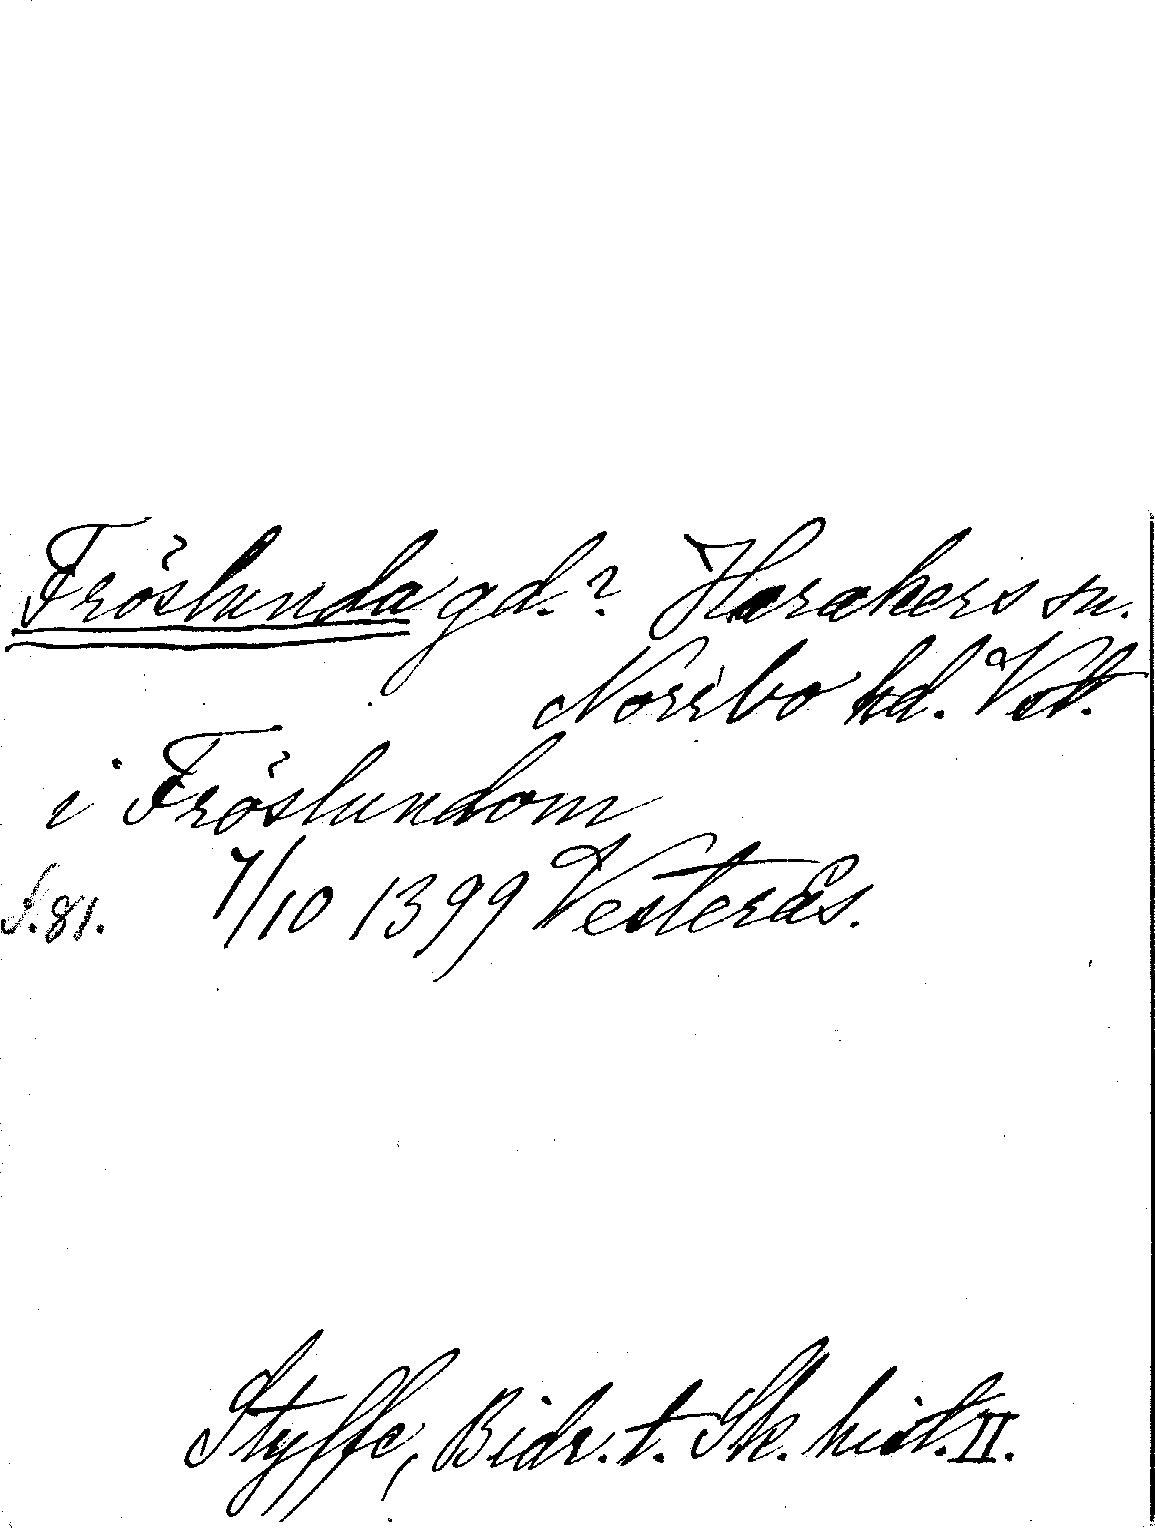 Fröslunda gd.? Harakers sn.
Norrbo hd. Vstl.
i Fröslundom
S. 81. 7/10 1399 Vesterås.
Styffe, Bidr. t. Sk. hist. II.